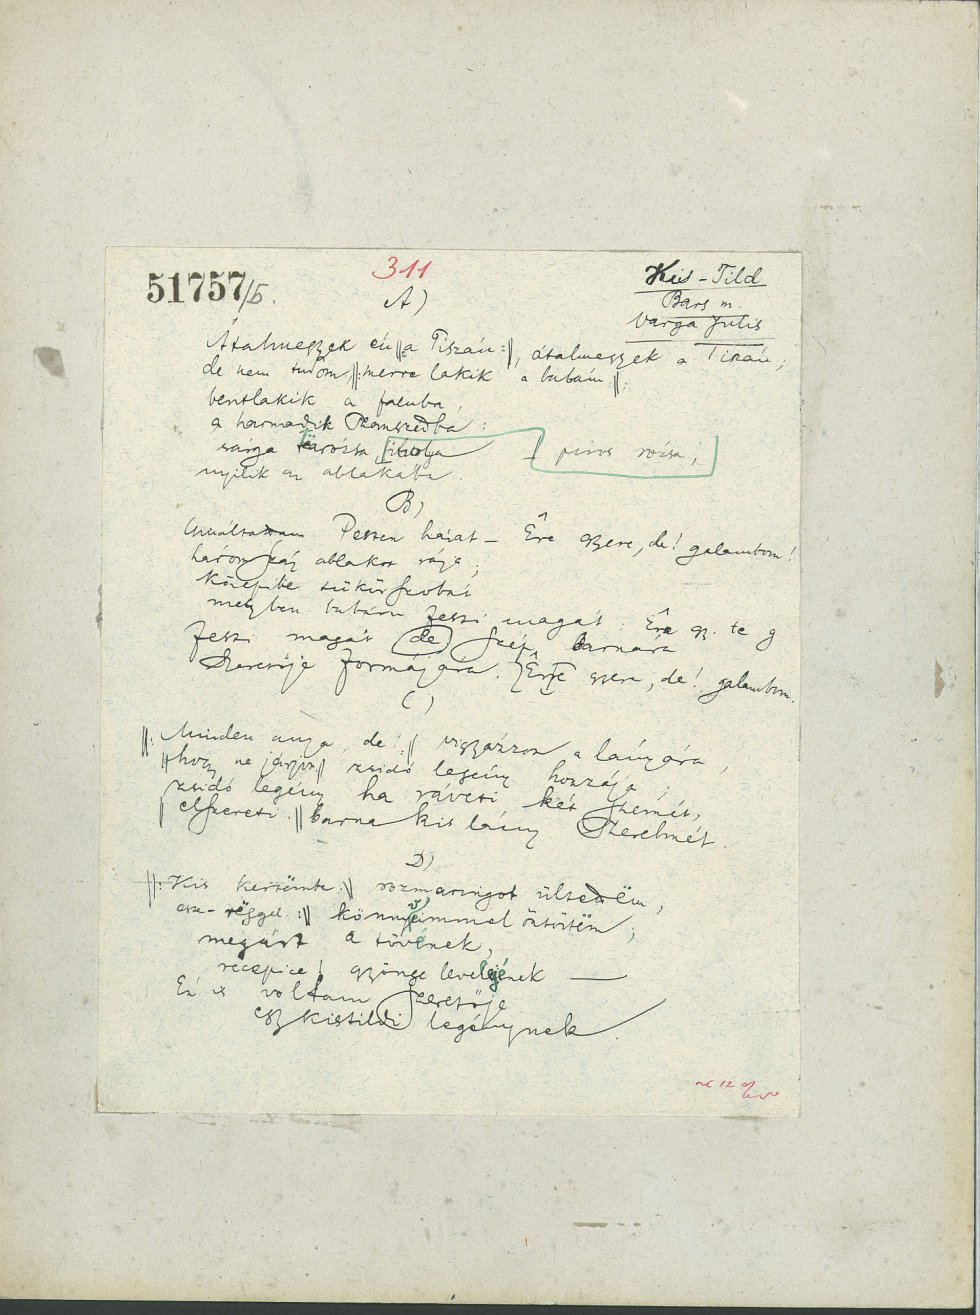 51757/b.
311
Kis-Tild
Bars m.
Varga Julis
A)
Átalmegyek én ||:a Tiszán:||, átalmegyek a Tiszán,
de nem tudom, ||:merre lakik a babám||:
bentlakik a faluba,
a harmadik szomszédba:
sárga rózsa, ibolya piros rózsa;
nyilik az ablakába.
B)
Pesten házat – Êre gyere, de! galambom!
három ablakot rája;
közepibe tükürszobát
melyben babám teszi magát. Êre gy. te g
teszi magát de szép barnára
Szeretője formájára. Êre gyere, de! galambom.
C)
||: Minden anya, de! :|| vigyázzon a lányára,
||hogy ne járjon|| zsidó legény hozzája;
zsidó legény ha ráveti két szemét,
elszereti ||barna kis lány szerelmét.
D)
||: Kis kertëmbe :|| rozmaringot ültedëm,
este-rëggel :|| könnyeimmel öntöztëm;
megárt a tövének,
recepice! gyönge levelejének —
Én is voltam szeretője
egy kistildi legénynek.